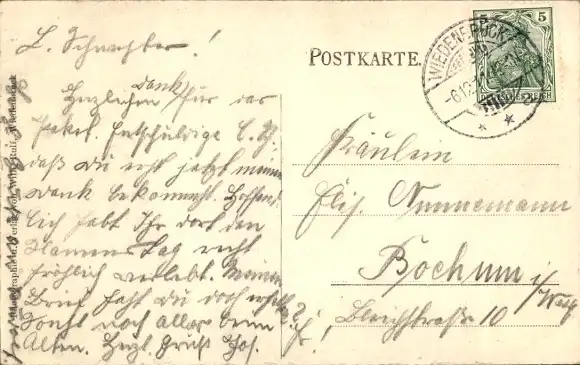 L. Schwester!
Herzlichen Dank für das
Paket. Entschuldige l. Sch.
daß Du erst jetzt meinen
Dank bekommst. Hoffent-
lich habt Ihr dort den
Namenstag recht
fröhlich verlebt. Meinen
Brief hast Du doch erhalten?
Sonst noch alles beim
Alten. Herzl. Gruß Jos.
POSTKARTE.
WIEDENBRÜCK
5
5
DEUTSCHES REICH
Fräulein
Elis. Nunnemann
Bochum i/Westf.
Bleichstraße 10